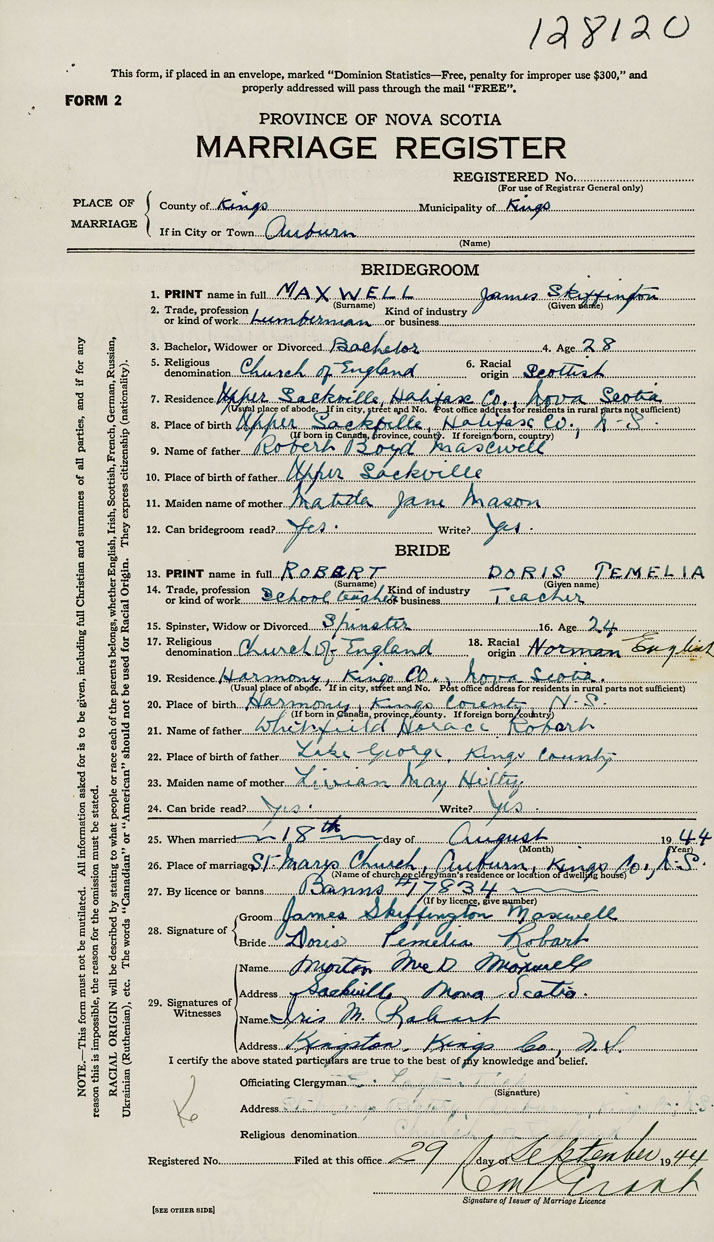 128120
This form, if placed in an envelope, marked "Dominion Statistics—Free, penalty for improper use $300," and
properly addressed will pass through the mail "FREE".
FORM 2
PROVINCE OF NOVA SCOTIA
MARRIAGE REGISTER
REGISTERED No.
(For use of Registrar General only)
PLACE OF MARRIAGE
County of Kings Municipality of Kings
If in City or Town Auburn
(Name)
BRIDEGROOM
1. PRINT name in full MAXWELL James Skiffington
(Surname) (Given name)
2. Trade, profession or kind of work Lumberman Kind of industry or business
3. Bachelor, Widower or Divorced Bachelor 4. Age 28
5. Religious denomination Church of England 6. Racial origin Scottish
7. Residence Upper Sackville, Halifax Co., Nova Scotia
(Usual place of abode. If in city, street and No. Post office address for residents in rural parts not sufficient)
8. Place of birth Upper Sackville, Halifax Co., N-S.
(If born in Canada, province, county. If foreign born, country)
9. Name of father Robert Boyd Maxwell
10. Place of birth of father Upper Sackville
11. Maiden name of mother Matilda Jane Mason
12. Can bridegroom read? Yes. Write? Yes.
BRIDE
13. PRINT name in full ROBART DORIS PEMELIA
(Surname) (Given name)
14. Trade, profession or kind of work School teacher Kind of industry or business Teacher
15. Spinster, Widow or Divorced Spinster 16. Age 24
17. Religious denomination Church of England 18. Racial origin Norman English
19. Residence Harmony, Kings Co., Nova Scotia.
(Usual place of abode. If in city, street and No. Post office address for residents in rural parts not sufficient)
20. Place of birth Harmony, Kings County, N-S.
(If born in Canada, province, county. If foreign born, country)
21. Name of father Whitfield Horace Robart
22. Place of birth of father Lake George, Kings County
23. Maiden name of mother Livian May Hilty
24. Can bride read? Yes. Write? Yes.
25. When married 18th day of August 1944
(Month) (Year)
26. Place of marriage St. Marys Church, Auburn, Kings Co., N-S.
(Name of church or clergyman's residence or location of dwelling house)
27. By licence or banns Banns #17834
(If by licence, give number)
28. Signature of
Groom James Skeffington Maxwell
Bride Doris Pemelia Robart
29. Signatures of Witnesses
Name Morton McD Maxwell
Address Sackville, Nova Scotia.
Name Iris M. Robart
Address Kingston, Kings Co, N.S.
I certify the above stated particulars are true to the best of my knowledge and belief.
Officiating Clergyman
(Signature)
Address
Religious denomination Church of England
Registered No. Filed at this office 29 day of September 1944
Signature of Issuer of Marriage Licence
[SEE OTHER SIDE]
NOTE.—This form must not be mutilated. All information asked for is to be given, including full Christian and surnames of all parties, and if for any
reason this is impossible, the reason for the omission must be stated.
RACIAL ORIGIN will be described by stating to what people or race each of the parents belongs, whether English, Irish, Scottish, French, German, Russian,
Ukrainian (Ruthenian), etc. The words "Canadian" or "American" should not be used for Racial Origin. They express citizenship (nationality).